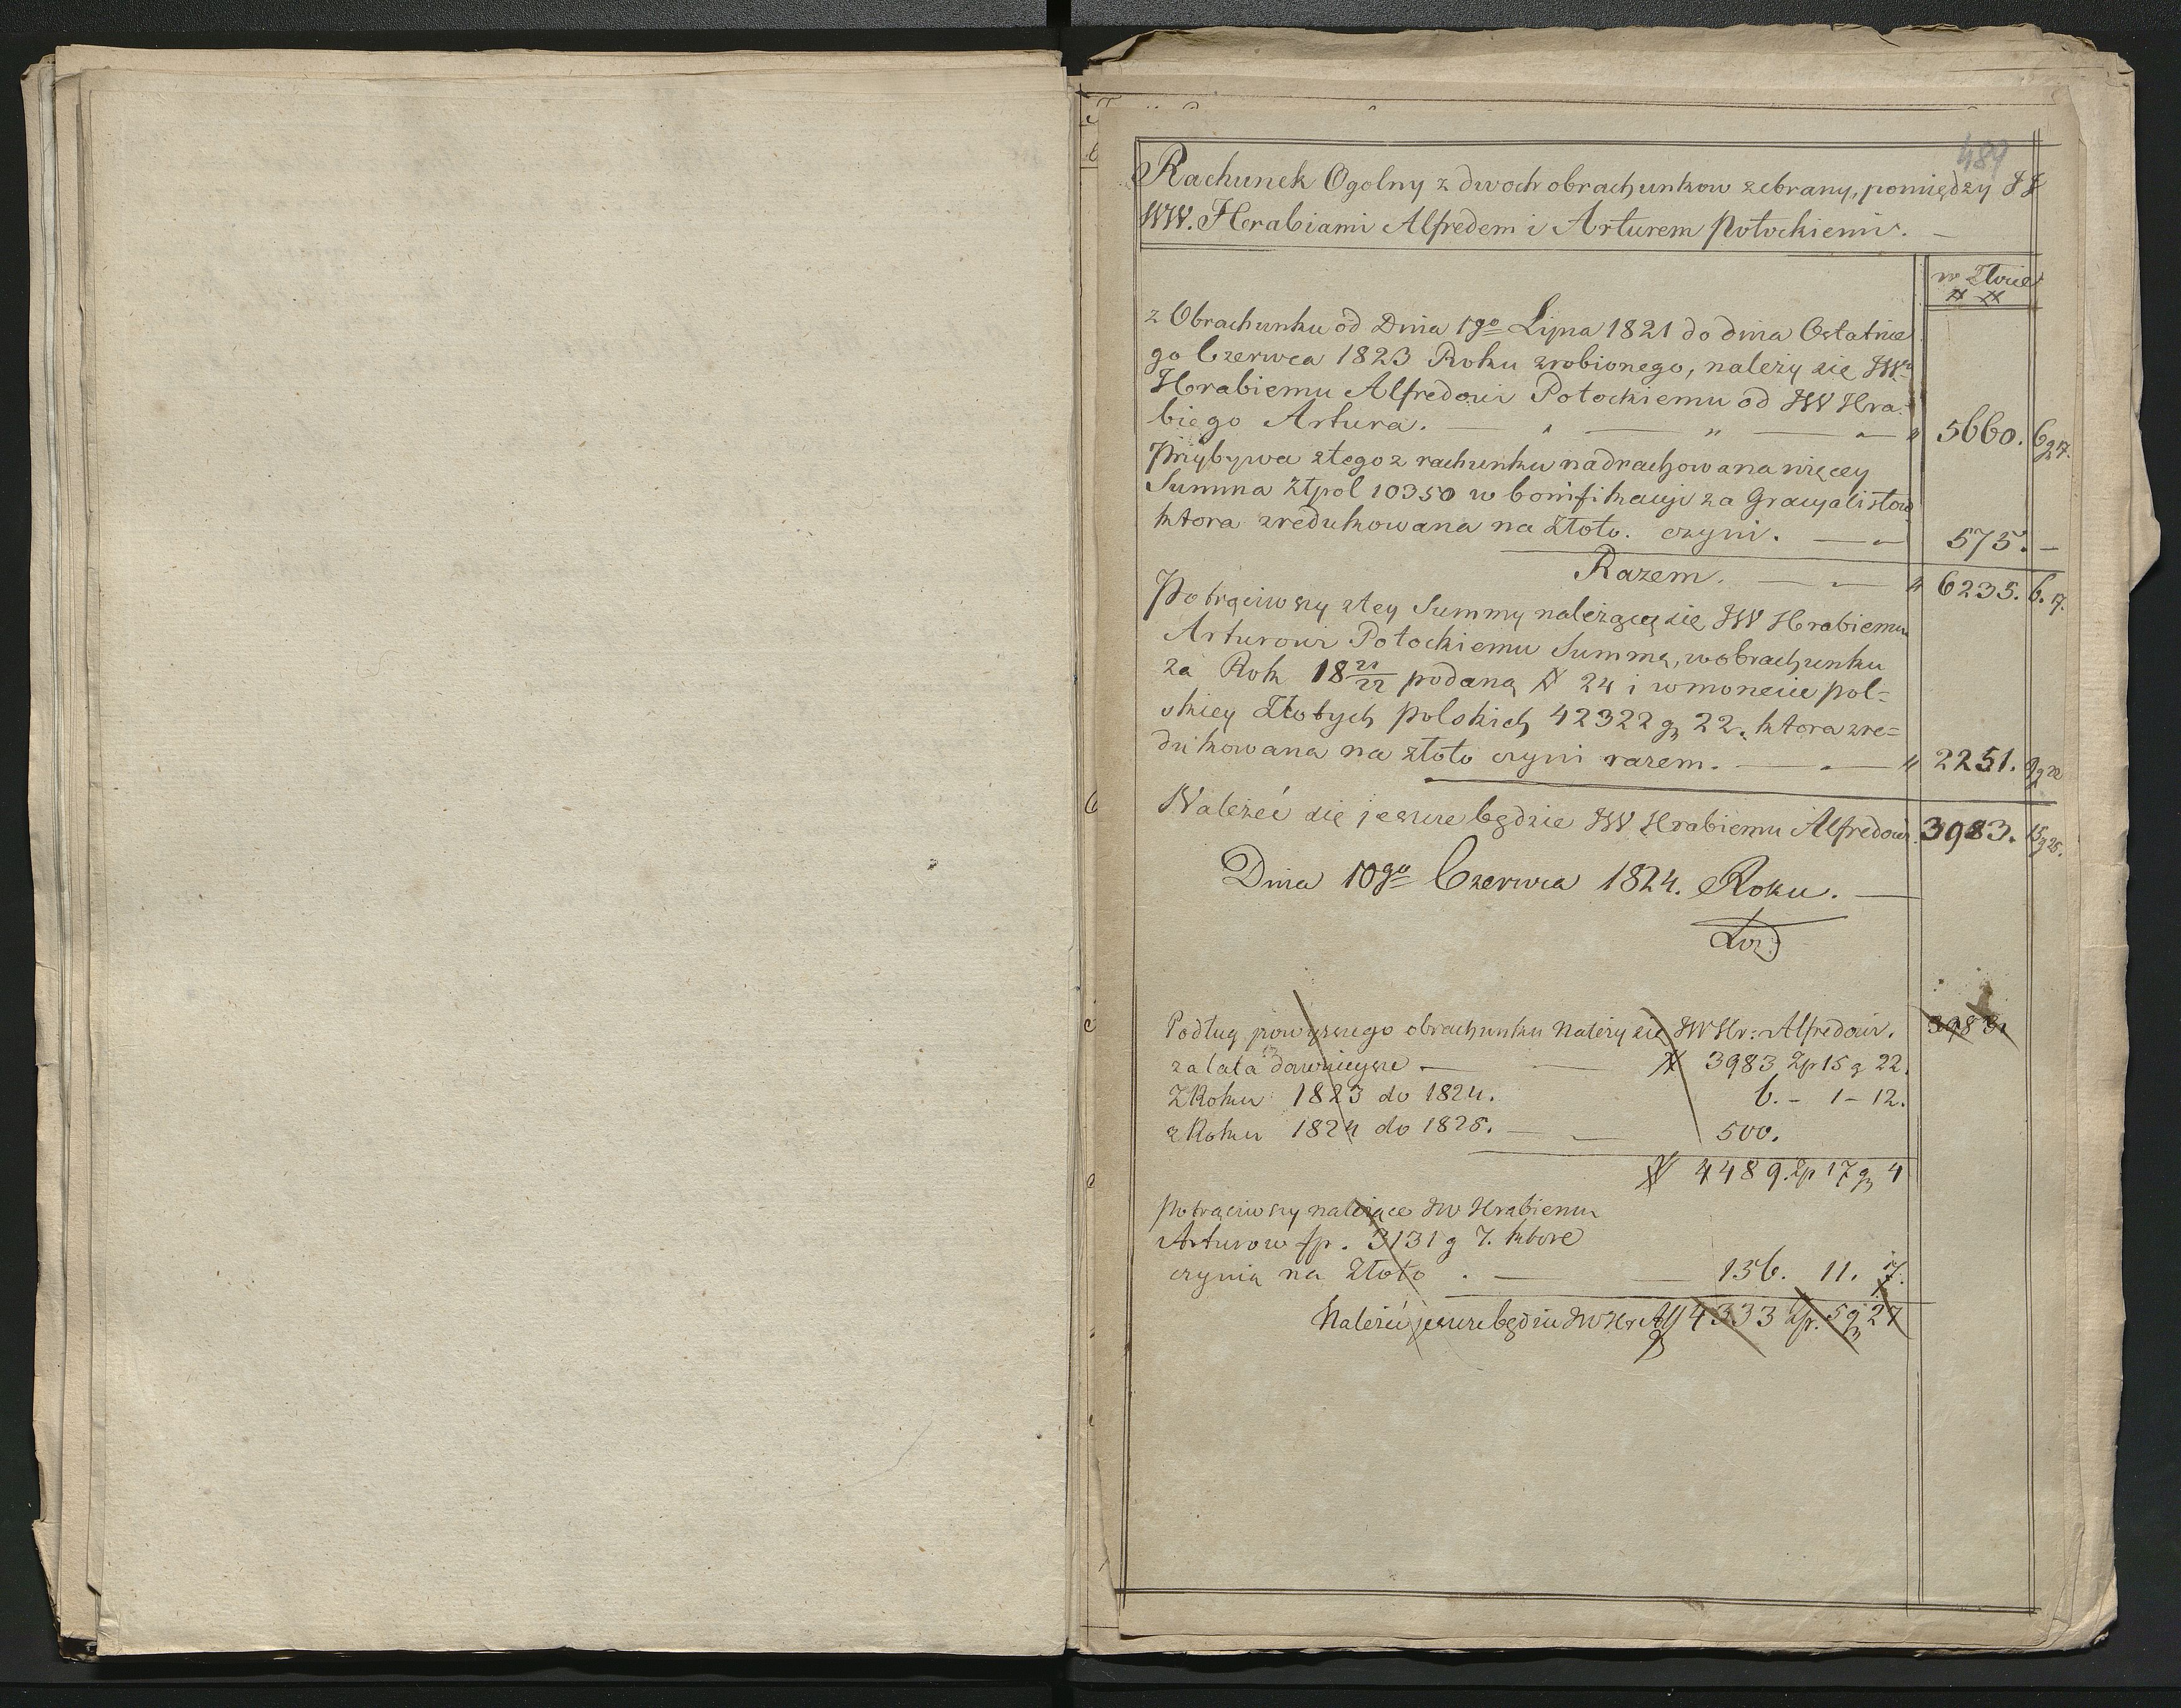 489
Rachunek Ogolny z dwoch obrachunkow zebrany, pomiędzy JJ
WW. Hrabiami Alfredem i Arturem Potockiemi. —
w Złocie
# #
z Obrachunku od Dnia 1go Lipca 1821 do dnia Ostatnie
go Czerwca 1823 Roku zrobionego, należy się JW
Hrabiemu Alfredowi Potockiemu od JW Hra=
biego Artura. — " — " — " 5660. 6 g 17.
Przybywa z tego z rachunku nadrachowana więcey
Summa Złpol 10350 w bonifikacyi za Gracyalistow
ktora zredukowana na złoto. czyni. — " 575. —
Razem. — " 6235. 6. 17.
Potrąciwszy z tey Summy należącą się JW Hrabiemu
Arturowi Potockiemu Summę, w obrachunku
za Rok 18 21/22 podaną # 24 i w monecie pol=
skiey Złotych polskich 42322 g 22. ktora zre=
dukowana na złoto czyni razem. — " 2251. 8 g 22
Należeć się jeszcze będzie JW Hrabiemu Alfredowi 3983. 15 g 25.
Dnia 10go Czerwca 1824. Roku. —
Podług powyższego obrachunku Należy się JW Hr: Alfredowi. 3983.
za lata dawnieysze — # 3983 Zp 15 g 22.
Z Roku 1823 do 1824. 6. - 1 - 12.
z Roku 1824 do 1825. — 500.
# 4489. Zp 17 g 4
Potrąciwszy należące JW Hrabiemu
Arturow fp. 3131 g 7. ktore
czynią na Złoto . — 156. 11. 7.
Należeć jeszcze będzie JW Hr Alf 4333 Zp. 5 g 27